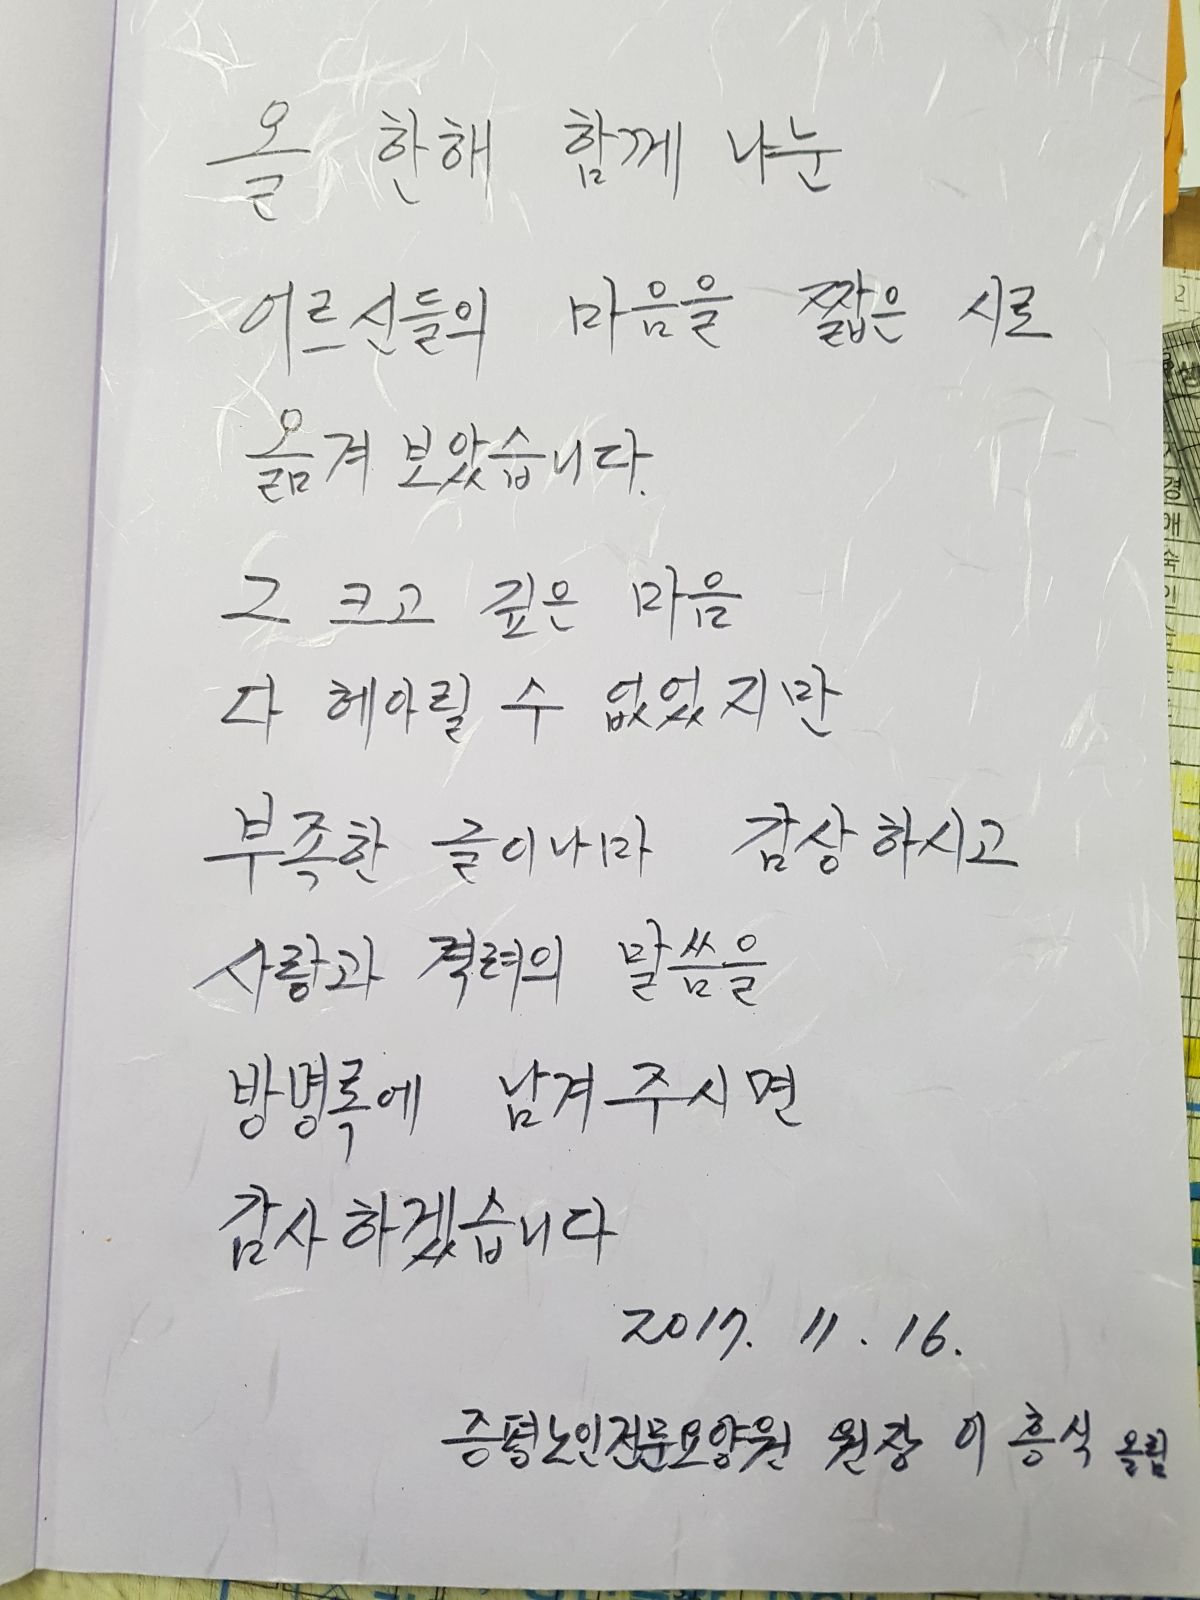 올 한해 함께 나눈
어르신들의 마음을 짧은 시로
옮겨 보았습니다.
그 크고 깊은 마음
다 헤아릴 수 없었지만
부족한 글이나마 감상하시고
사랑과 격려의 말씀을
방명록에 남겨주시면
감사하겠습니다
2017. 11. 16.
증평노인전문요양원 원장 이흥식 올림
경
애
숙